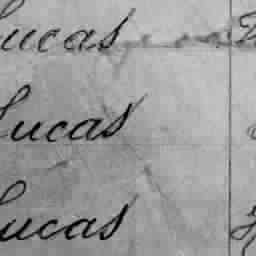 Lucas
Lucas
Lucas